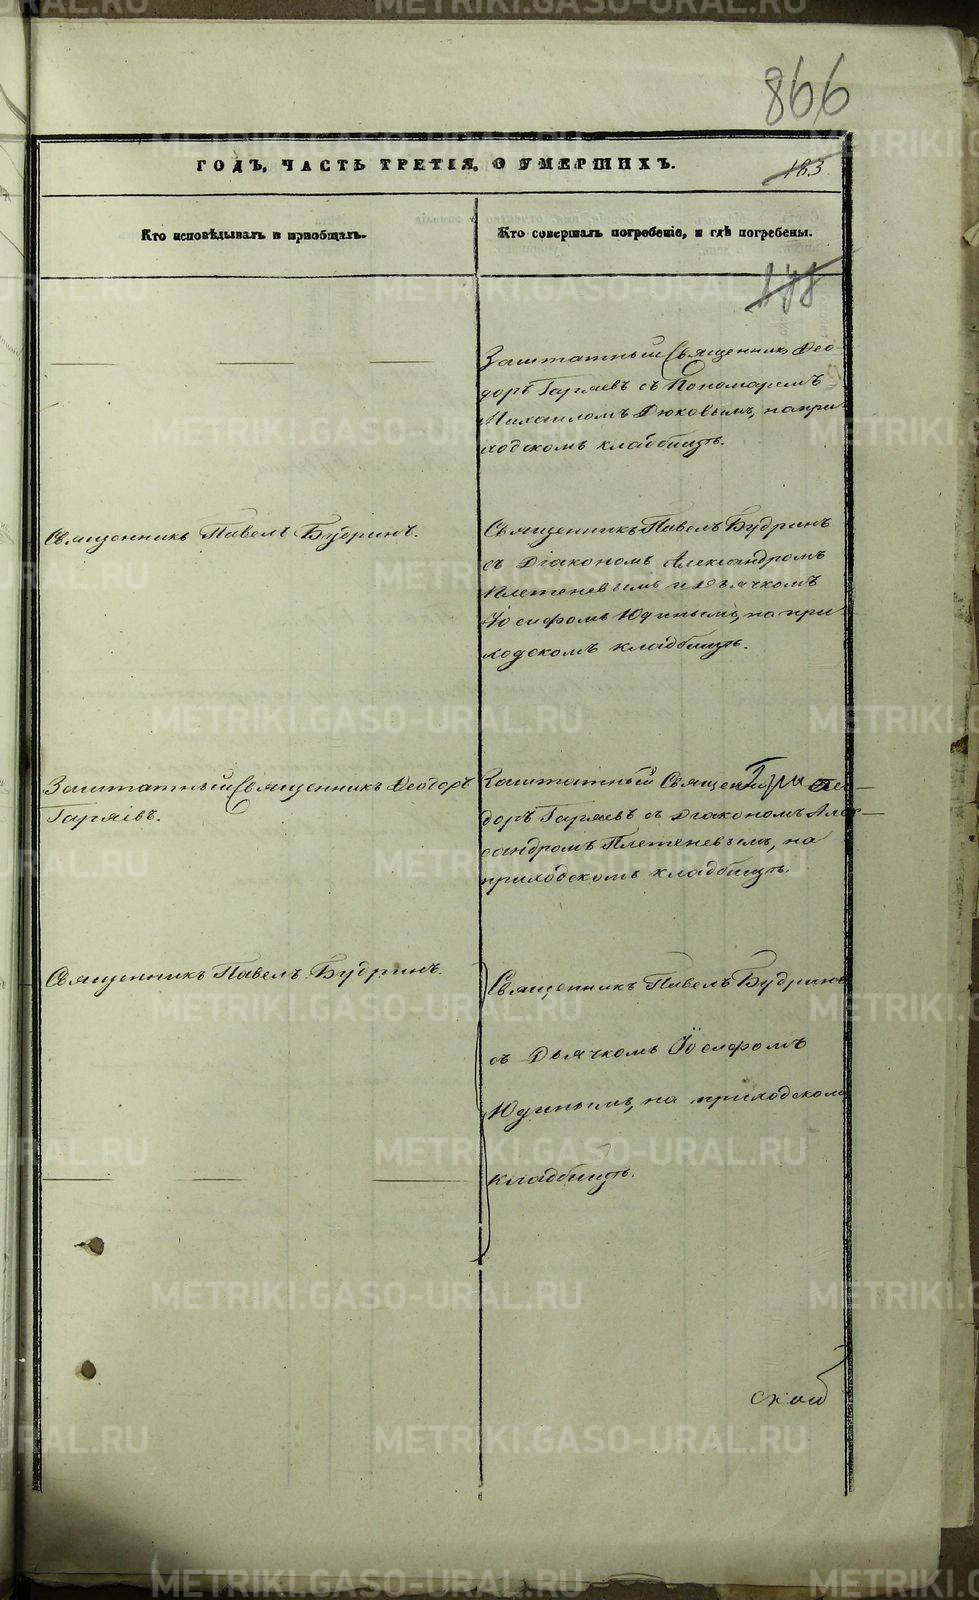 866
ГОДЪ, ЧАСТЬ ТРЕТІЯ, О УМЕРШИХЪ.
183
Кто исповѣдывалъ и пріобщалъ.
Кто совершалъ погребеніе, и гдѣ погребены.
188
Заштатный Священникъ Ѳео-
доръ Гаряевъ съ Пономаремъ
Михаиломъ Дюковымъ, на при-
ходскомъ кладбищѣ.
Священникъ Павелъ Будринъ.
Священникъ Павелъ Будринъ
съ Діакономъ Александромъ
Плетеневымъ и Дьячкомъ
Іосифомъ Юдинымъ, на при-
ходскомъ кладбищѣ.
Заштатный Священникъ Ѳеодоръ
Гаряевъ.
Заштатный Священникъ Ѳео-
Три
доръ Гаряевъ съ Діакономъ Алек-
сандромъ Плетеневымъ, на
приходскомъ кладбищѣ.
Священникъ Павелъ Будринъ.
Священникъ Павелъ Будринъ
съ Дьячкомъ Іосифомъ
Юдинымъ, на приходскомъ
кладбищѣ.
METRIKI.GASO-URAL.RU